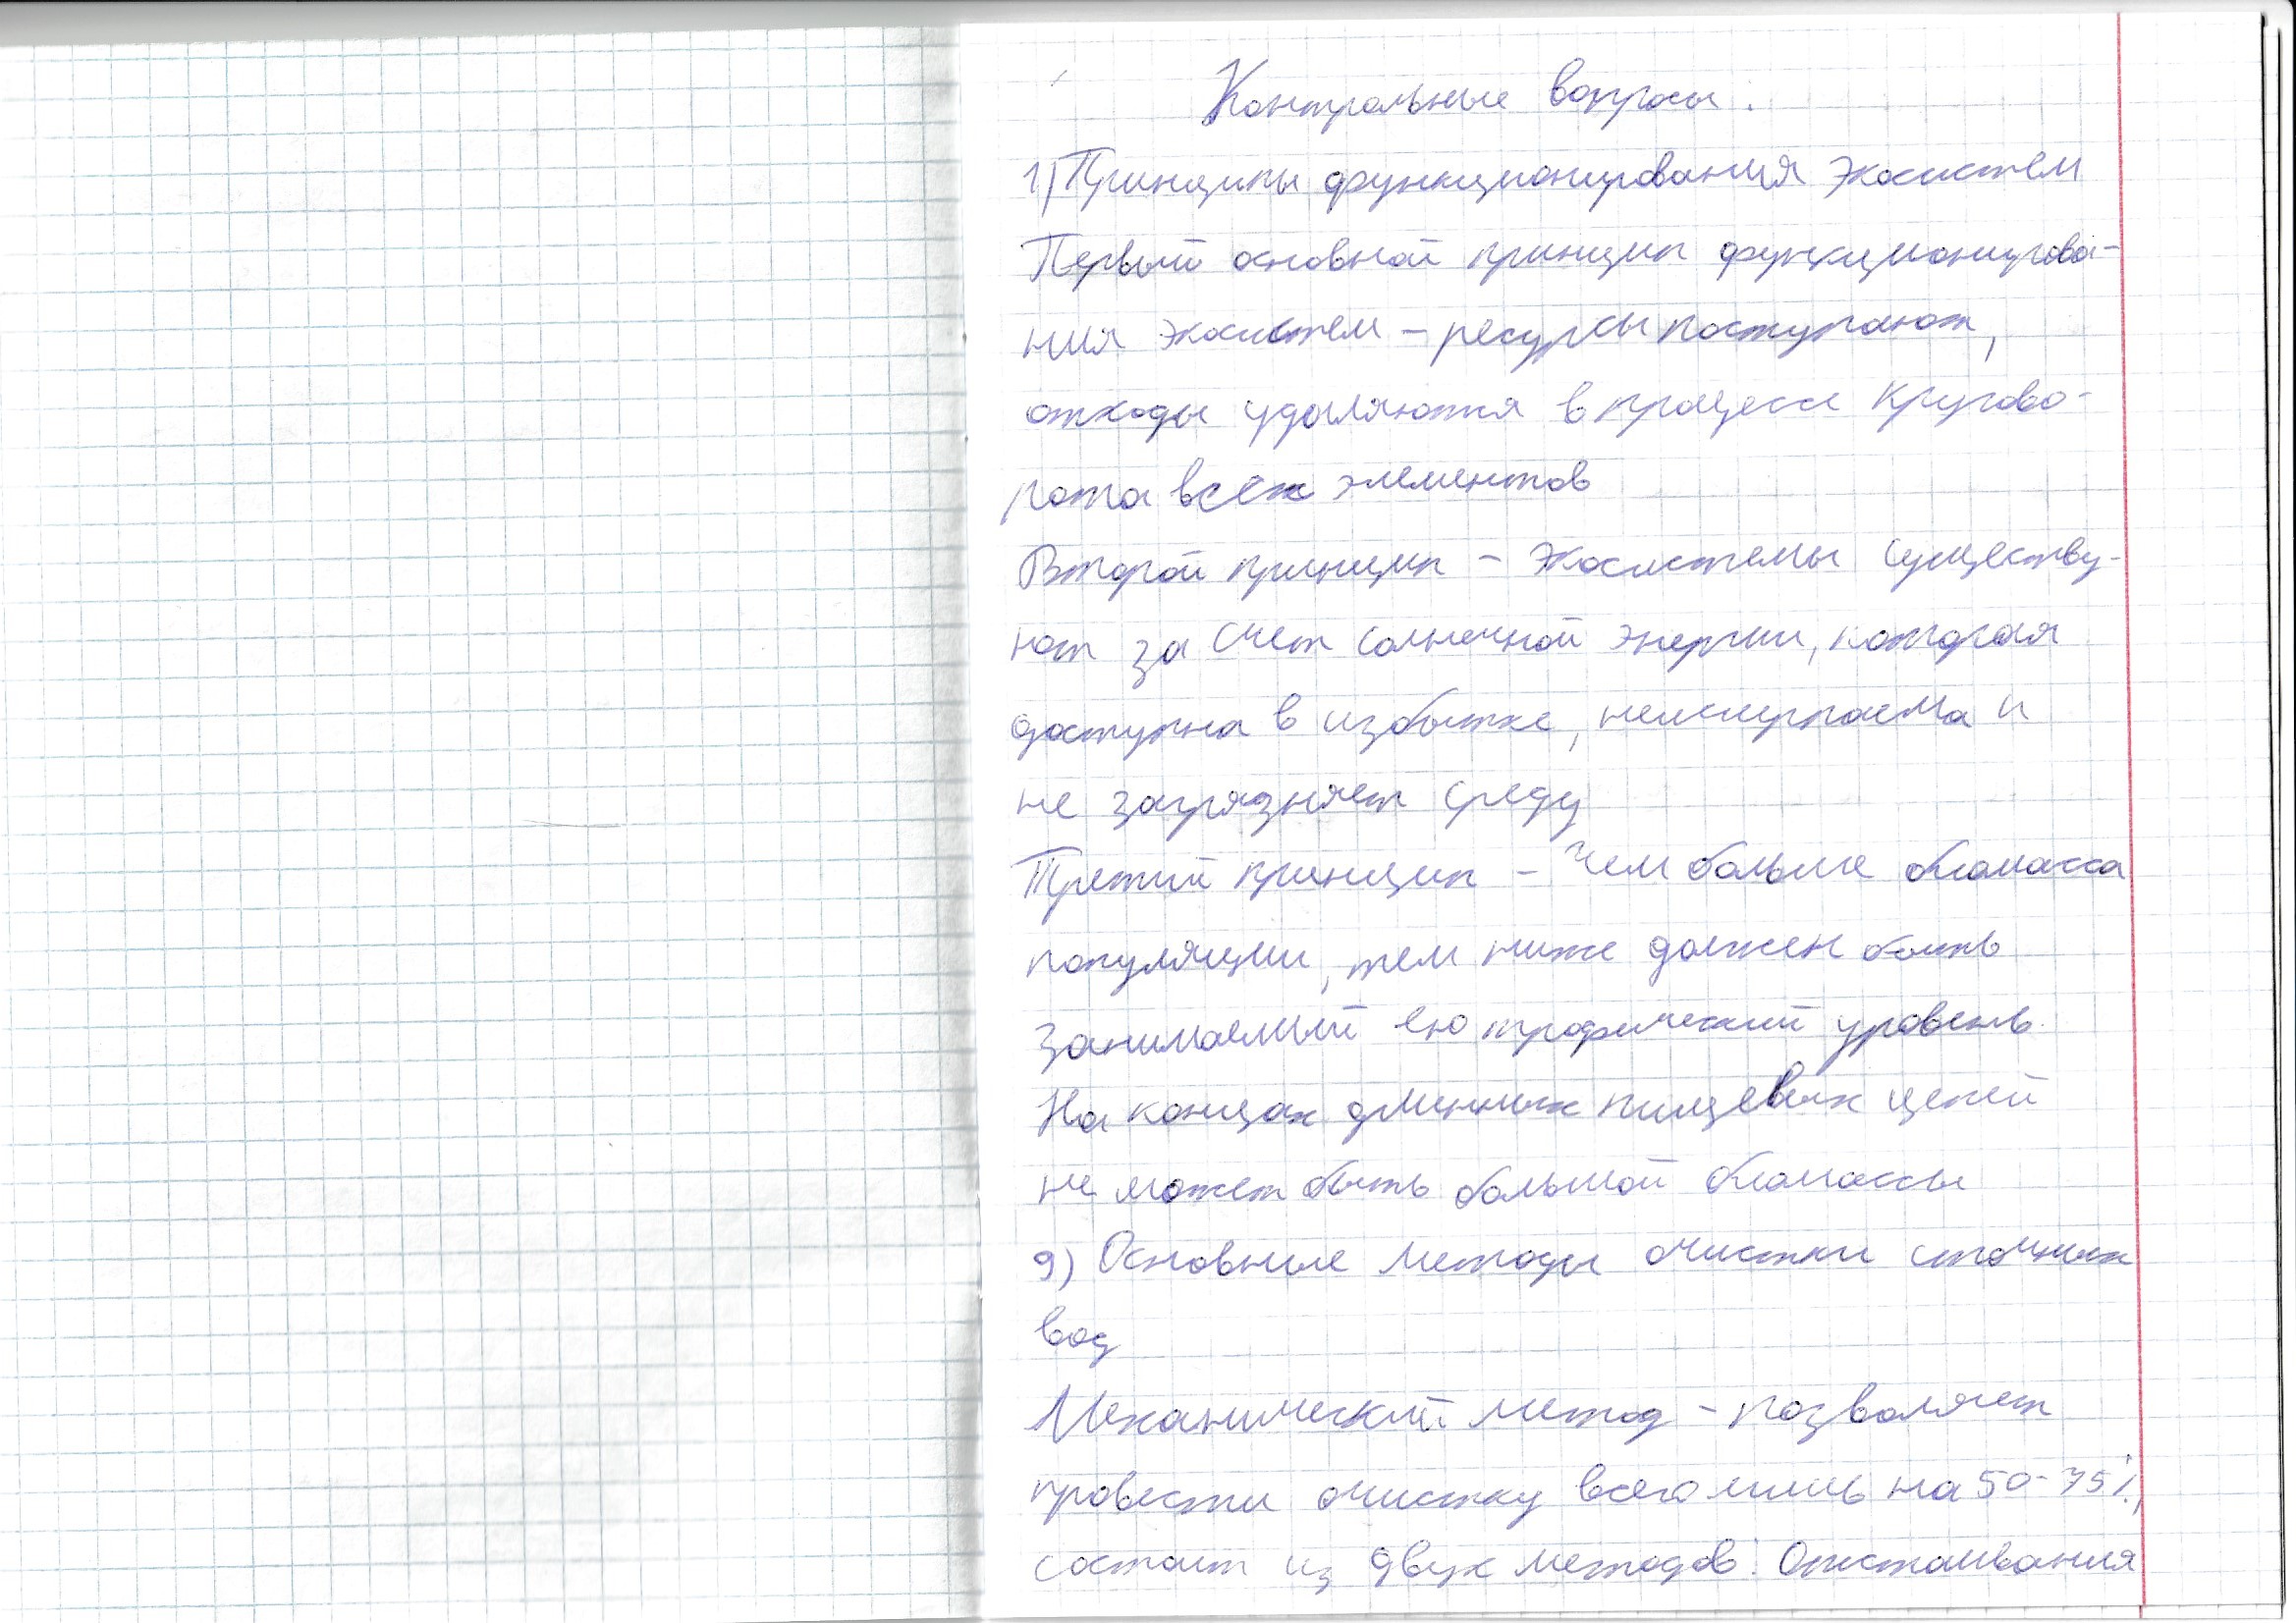 Контрольные вопросы:
1) Принципы функционирования экосистем
Первый основной принцип функционирова-
ния экосистем – ресурсы поступают,
отходы удаляются в процессе кругово-
рота всех элементов
Второй принцип – экосистемы существу-
ют за счет солнечной энергии, которая
доступна в избытке, неисчерпаема и
не загрязняет среду
Третий принцип – Чем больше биомасса
популяции, тем ниже должен быть
занимаемый ею трофический уровень
На концах длинных пищевых цепей
не может быть большой биомассы
9) Основные методы очистки сточных
вод
Механический метод – позволяет
провести очистку всего лишь на 50-75%,
состоит из двух методов: Отстаивания